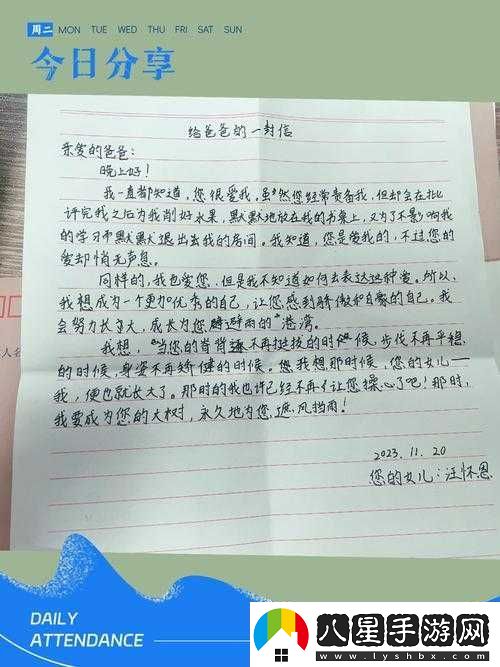 周二 MON TUE WED THU FRI SAT SUN
今日分享
给爸爸的一封信
亲爱的爸爸：
晚上好！
我一直都知道，您很爱我，虽然您经常责备我，但却会在批
评完我之后为我削好水果，默默地放在我的书桌上，又为了不影响我
的学习而默默退出去我的房间。我知道，您是爱我的，不过您的
爱却悄无声息。
同样的，我也爱您，但是我不知道如何去表达这种爱。所以，
我想成为一个更加优秀的自己，让您感到骄傲和自豪的自己。我
会努力长大，成长为您避雨的“港湾。
我想，“当您的肩背不再挺拔的时候，步伐不再平稳
的时候，身姿不再矫健的时候。我想那时候，您的女儿——
我，便也就长大了。那时的我也许已经不再让您操心了吧！那时，
我要成为您的大树，永久地为您遮风挡雨！
2023.11.20
您的女儿：汪怀恩
DAILY
ATTENDANCE
八星手游网
www.lyshbx.com